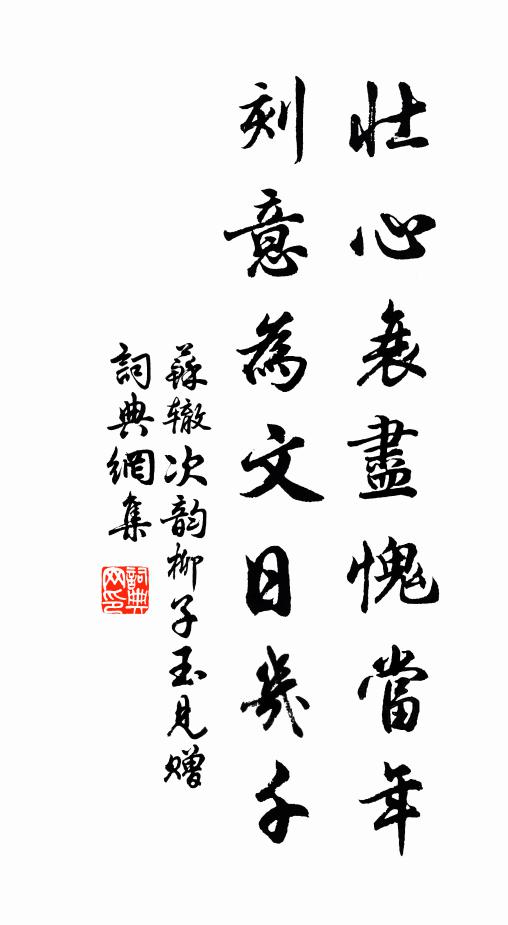 壯心衰盡愧當年
刻意為文日幾千
蘇辙次韵柳子玉見赠
詞典網集
詞典網印